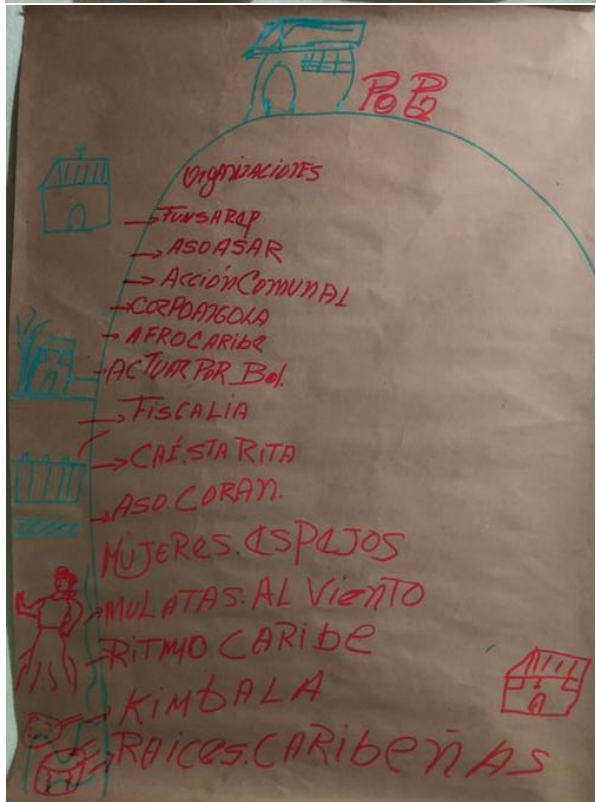 Po Pa
Organizaciones
→ FUNSAREP
→ ASOASAR
→ Acción Comunal
→ CORPOANGOLA
- AFROCARIBE
- ACTUAR POR Bol.
→ FISCALIA
→ CAI. STA RITA
→ ASO. CORAN.
MUJERES. ESPEJOS
MULATAS. AL VIENTO
RITMO CARIBE
KIMBALA
RAICES. CARIBEÑAS